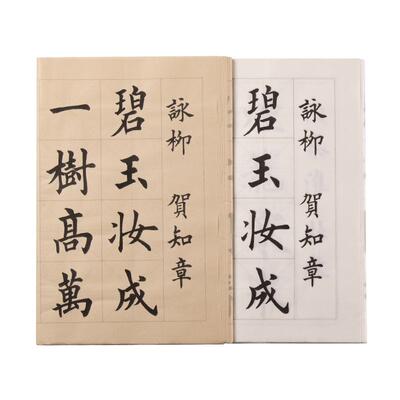 詠柳 賀知章
碧玉妆成
一樹髙萬
詠柳 賀知章
碧玉妆成